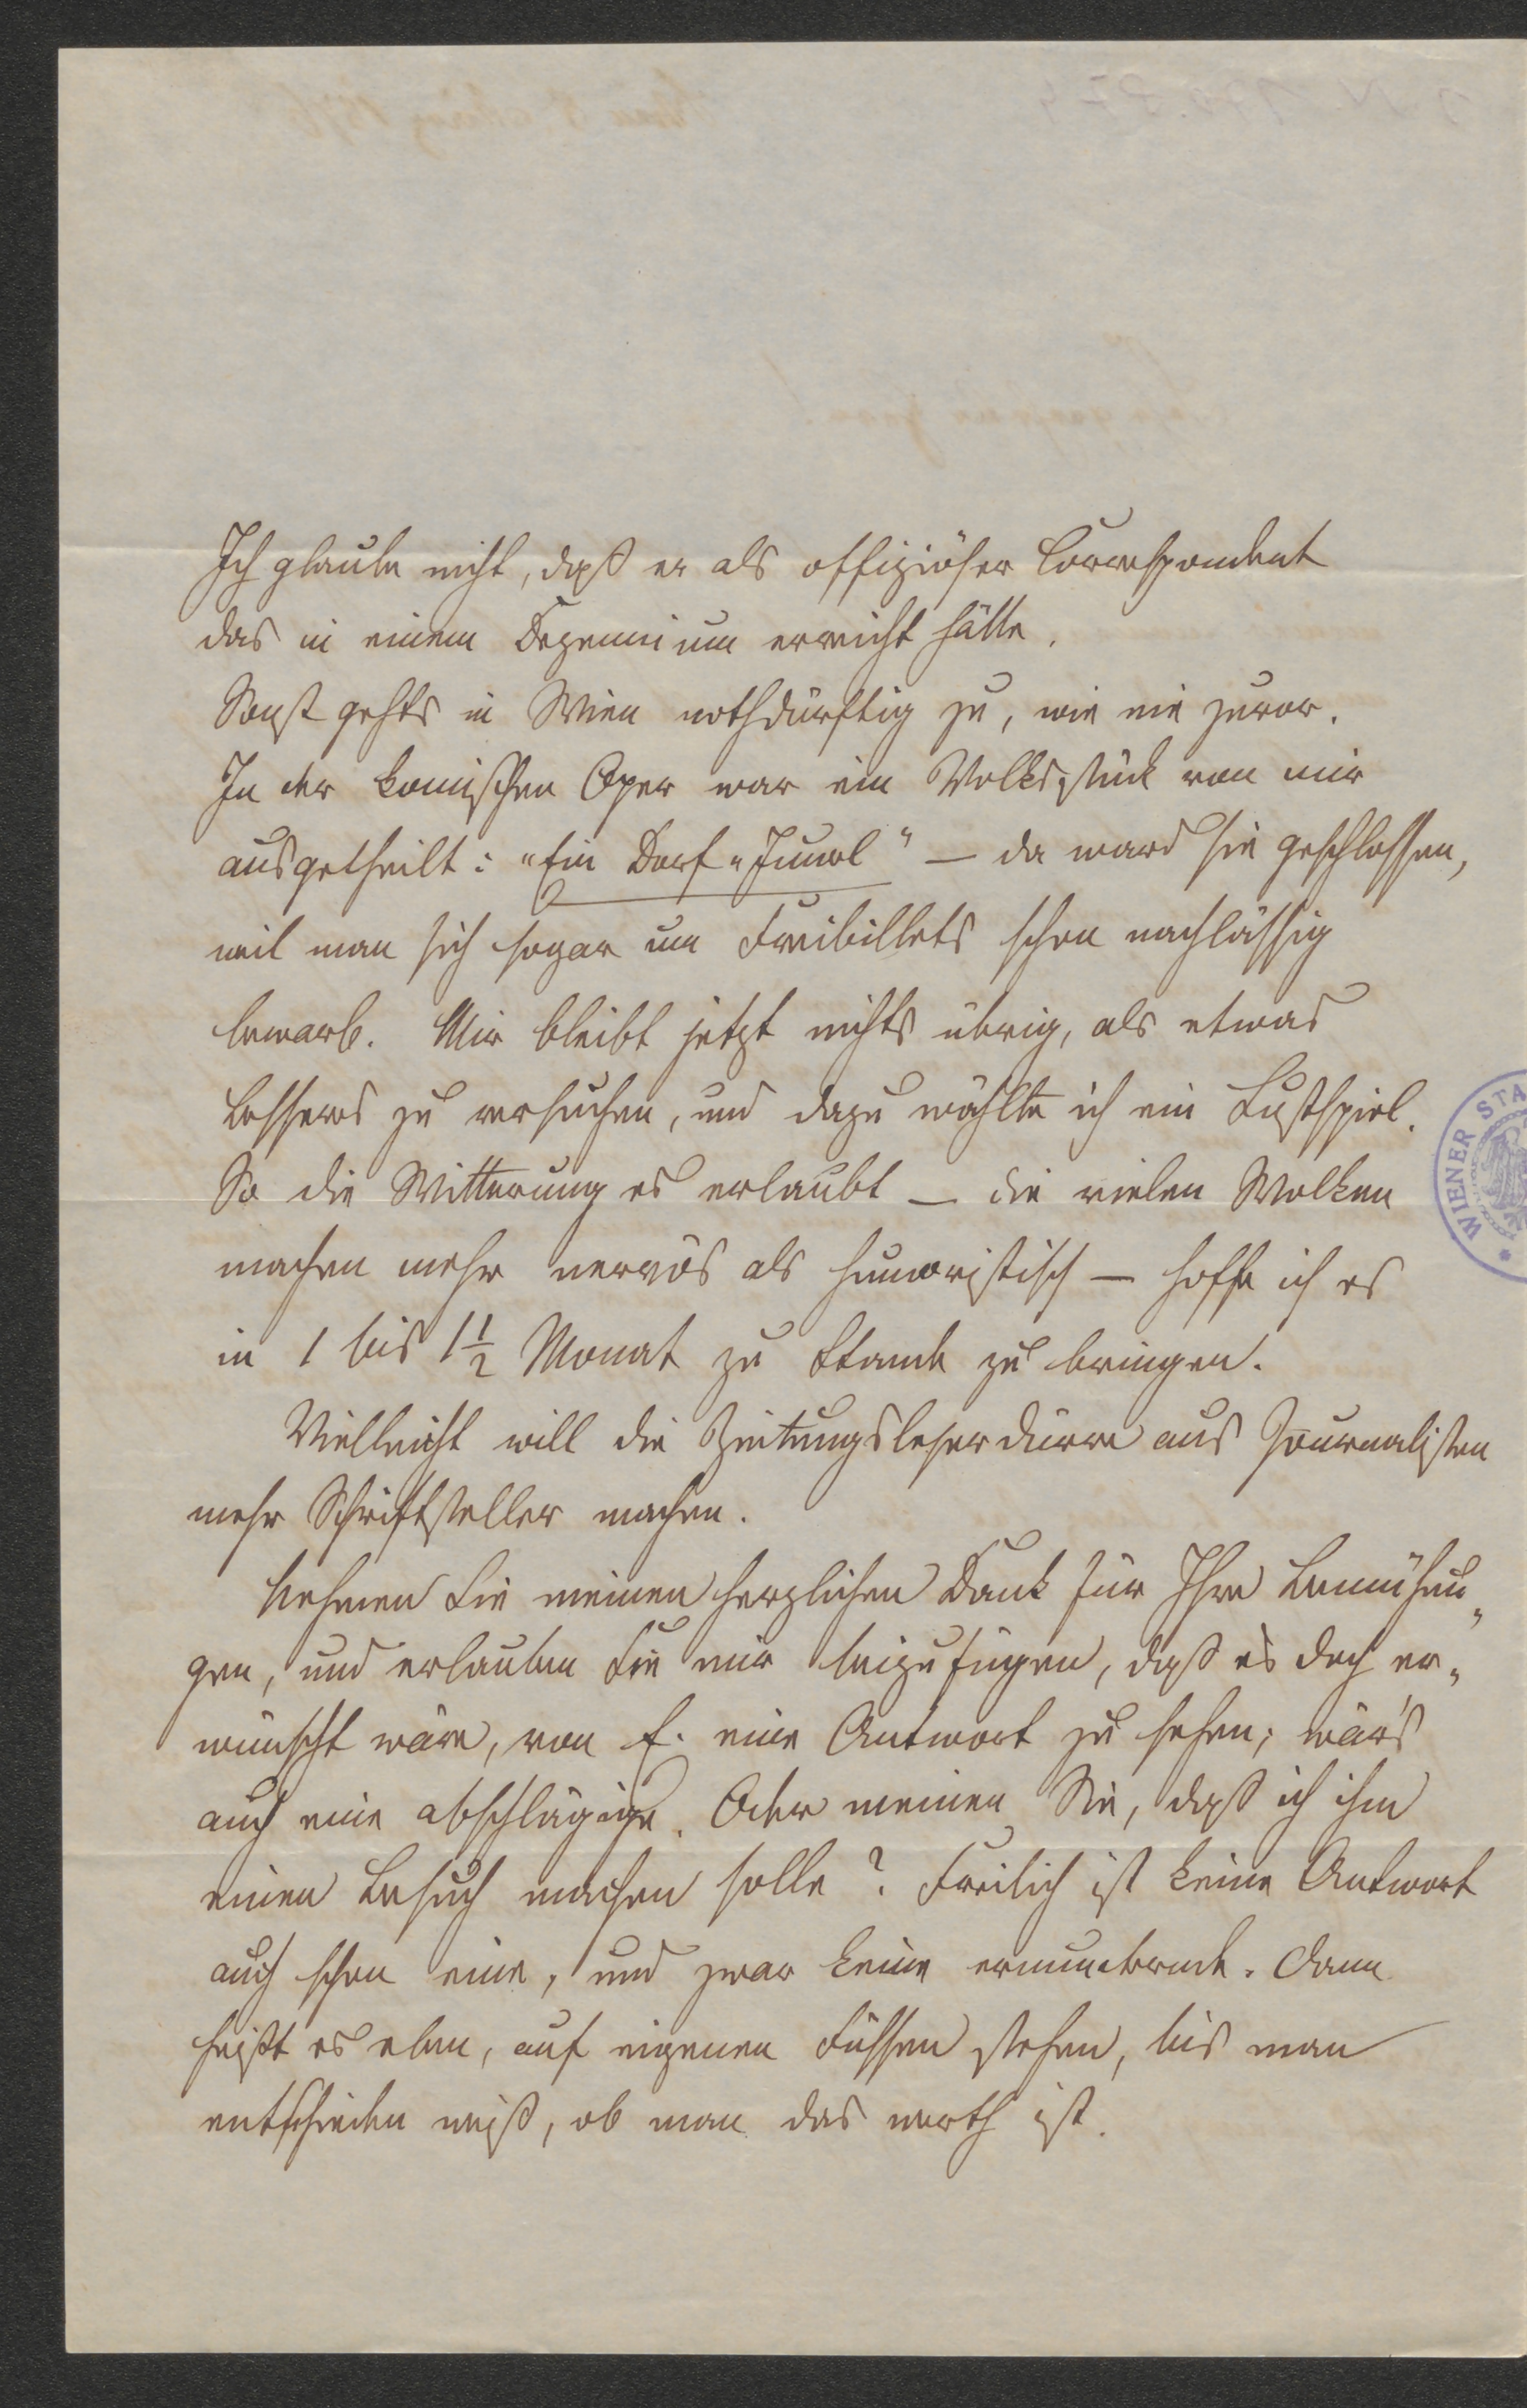 Ich glaube nicht, daß er als offiziöser Correspondent
das in einem Dezennium erreicht hätte.
Sonst gehts in Wien nothdürftig zu, wie nie zuvor.
In der komischen Oper war ein Volksstück von mir
ausgetheilt: "Ein Dorf-Juwel" — da ward sie geschlossen,
weil man sich sogar um Freibillets schon nachlässig
bewarb. Mir bleibt jetzt nichts übrig, als etwas
Besseres zu versuchen, und dazu wählte ich ein Lustspiel.
So die Witterung es erlaubt — die vielen Wolken
machen mehr nervös als humoristisch — hoffe ich es
in 1 bis 1½ Monat zu Stande zu bringen.
Vielleicht will die Zeitungsleserdürre aus Journalisten
mehr Schriftsteller machen.
Nehmen Sie meinen herzlichen Dank für Ihre Bemühun-
gen, und erlauben Sie mir beizufügen, daß es doch er-
wünscht wäre, von E. eine Antwort zu sehen; wär's
auch eine abschlägige. Oder meinen Sie, daß ich ihm
einen Besuch machen solle? Freilich ist keine Antwort
auch schon eine, und zwar keine ermunternde. Dann
heißt es eben, auf eigenen Füssen stehen, bis man
entschieden weiß, ob man das werth ist.
WIENER STA